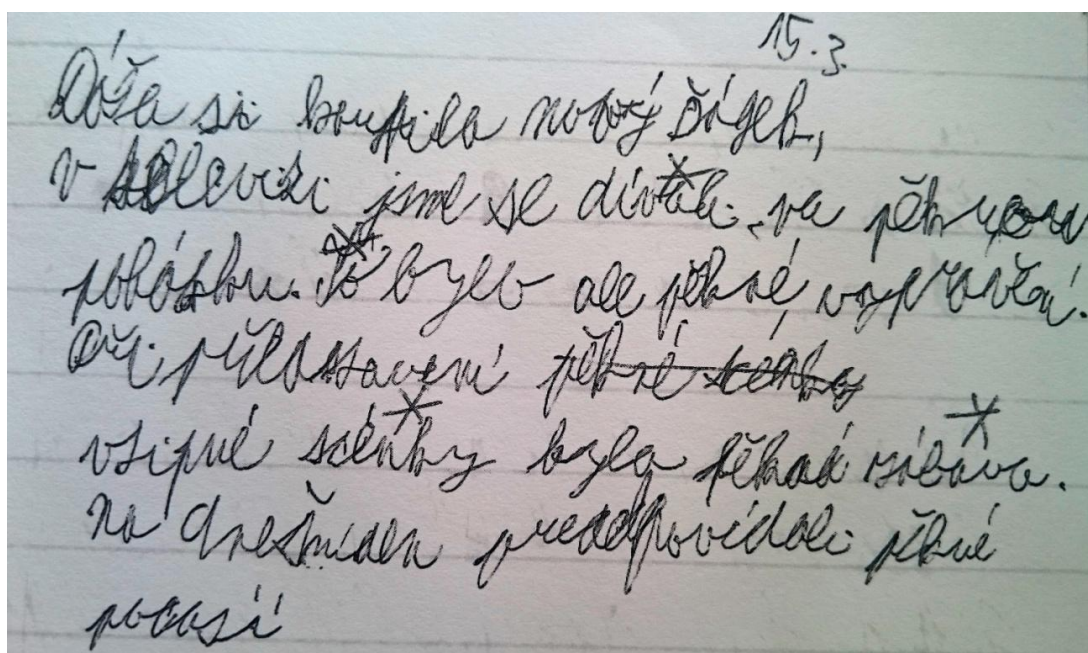 15.3.
Dáša si koupila nový šátek,
v televizi jsme se dívali na pěknou
pohádku. To bylo ale pěkné vyprávění.
Při představení pěkné scénky
vtipné scénky byla pěkná zábava.
Na dnešní den předpovídali pěkné
počasí